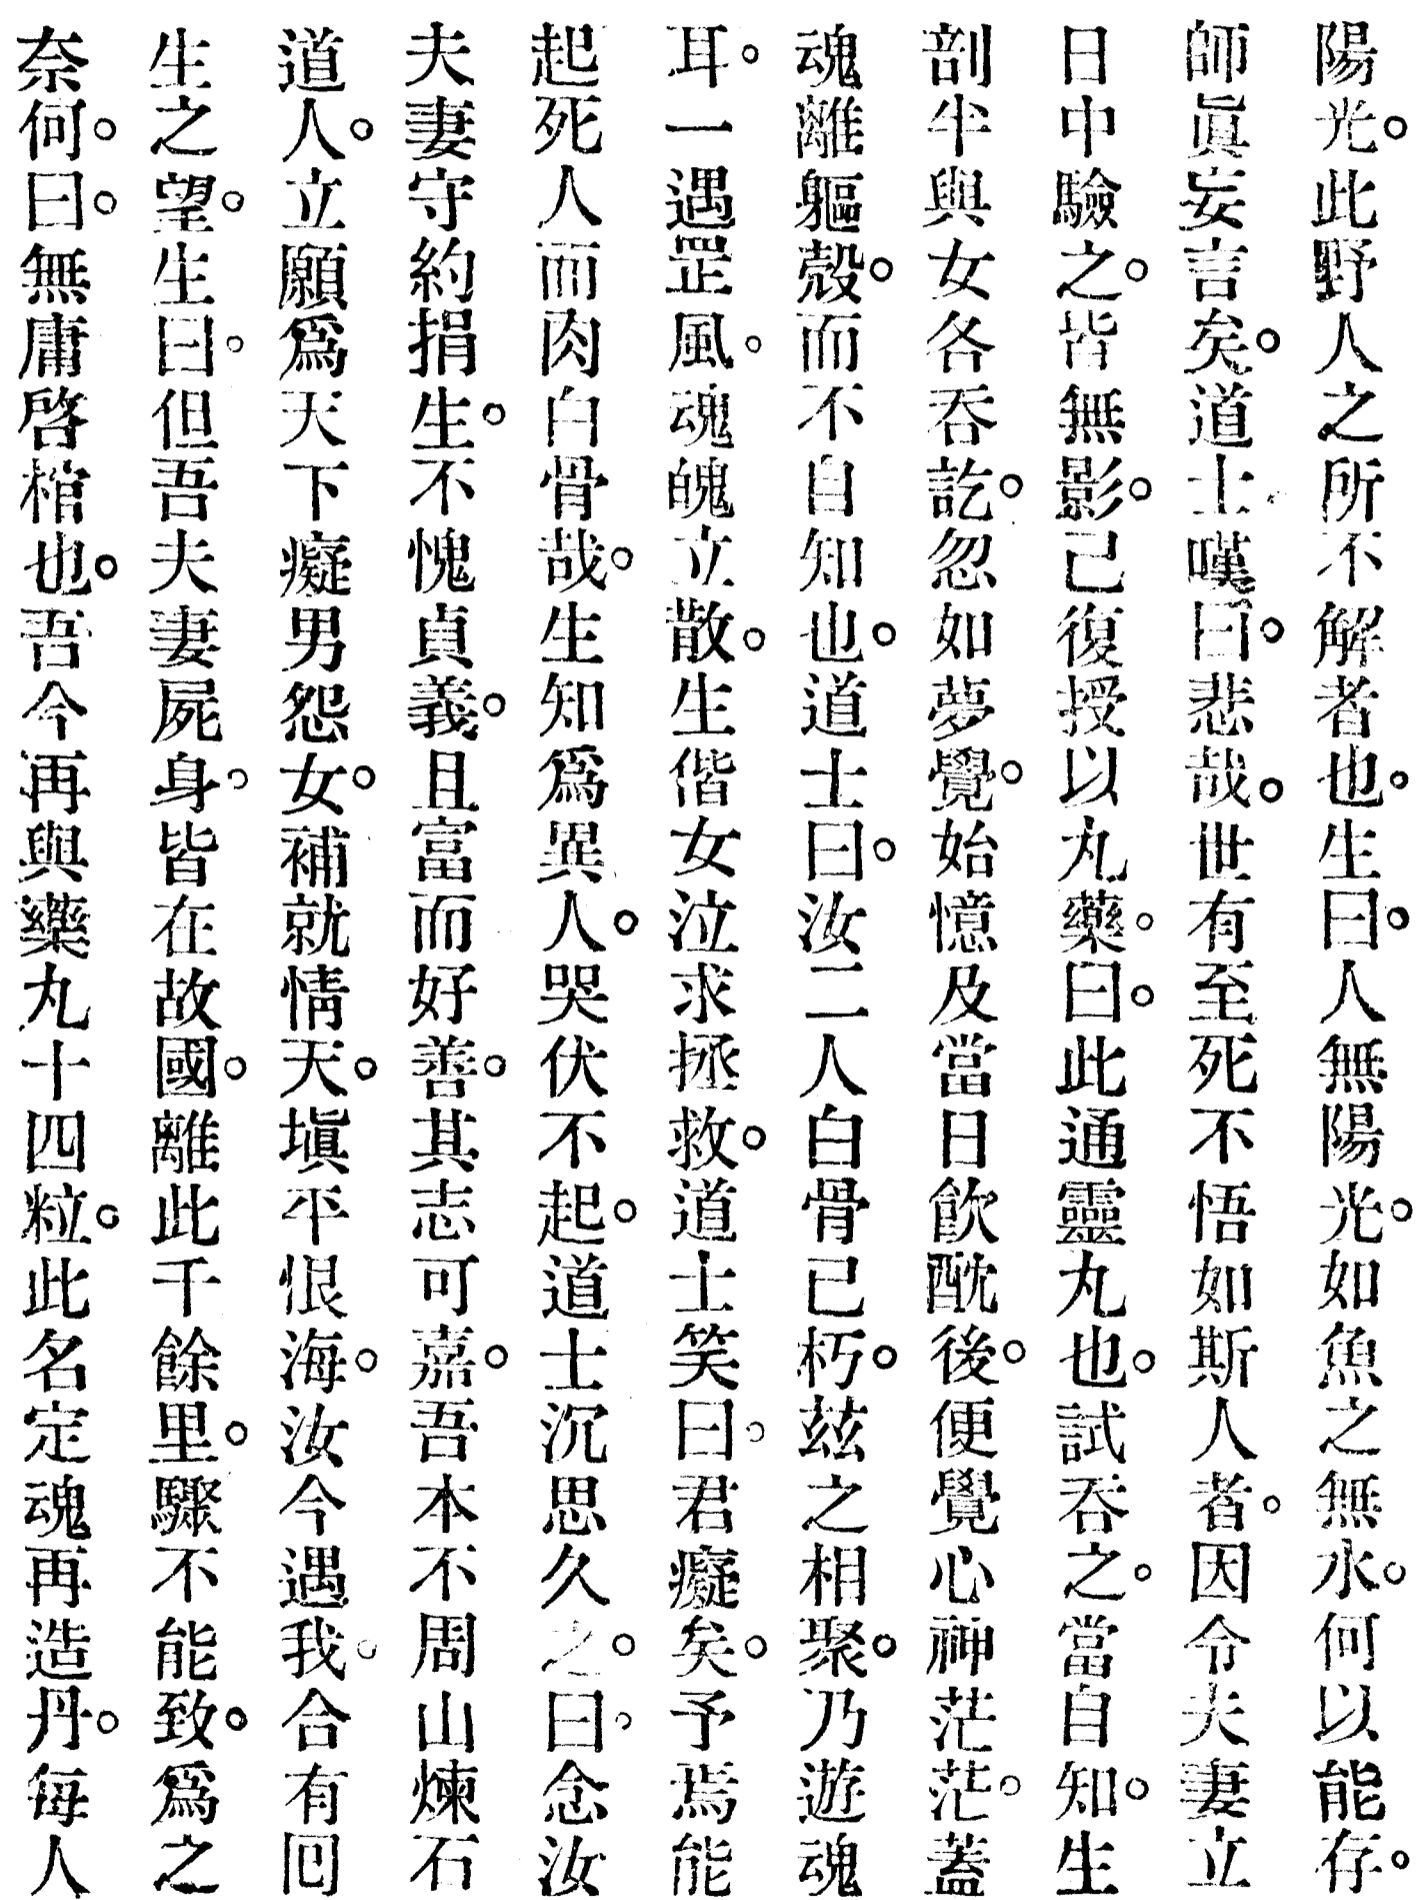 陽光。此野人之所不解者也。生曰。人無陽光。如魚之無水。何以能存。
師眞妄言矣。道士嘆曰。悲哉。世有至死不悟如斯人者。因令夫妻立
日中驗之。皆無影。己復授以丸藥。曰。此通靈丸也。試吞之。當自知。生
剖半與女各吞訖。忽如夢覺。始憶及當日飮酖後。便覺心神茫茫。蓋
魂離軀殼。而不自知也。道士曰。汝二人白骨已朽。茲之相聚。乃遊魂
耳。一遇罡風。魂魄立散。生偕女泣求拯救。道士笑曰。君癡矣。予焉能
起死人而肉白骨哉。生知爲異人。哭伏不起。道士沉思久之。曰。念汝
夫妻守約捐生。不愧貞義。且富而好善。其志可嘉。吾本不周山煉石
道人。立願爲天下癡男怨女。補就情天。塡平恨海。汝今遇我。合有回
生之望。生曰。但吾夫妻屍身。皆在故國。離此千餘里。驟不能致。爲之
奈何。曰。無庸啓棺也。吾今再與藥丸十四粒。此名定魂再造丹。每人